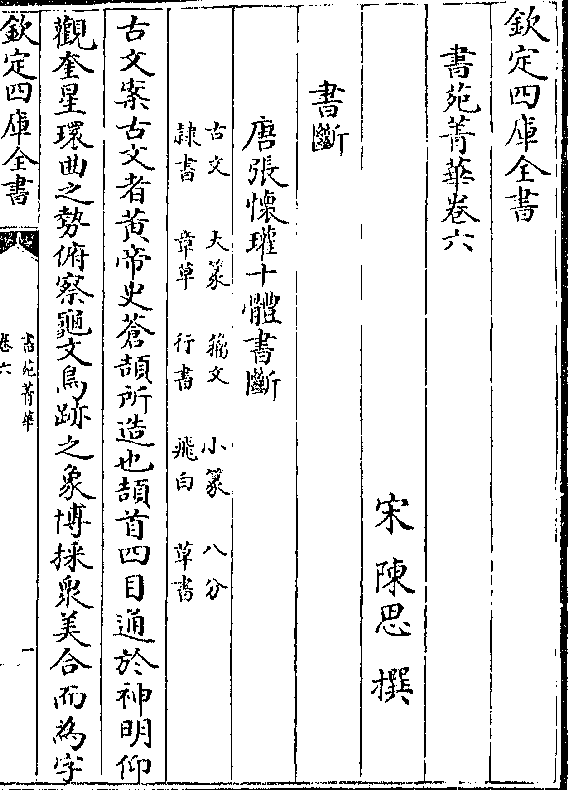 欽定四庫全書
書苑菁華卷六
宋 陳思 撰
書斷
唐張懷瓘十體書斷
古文 大篆 籀文 小篆 八分
隸書 章草 行書 飛白 草書
古文案古文者黄帝史蒼頡所造也頡首四目通於神明仰
觀奎星環曲之勢俯察龜文鳥跡之象博採衆美合而為字
欽定四庫全書
書苑菁華
卷六
一